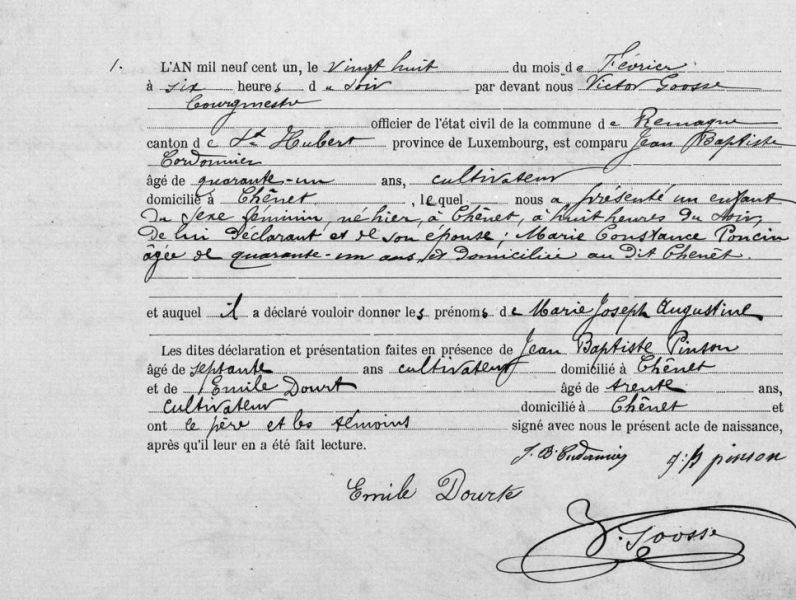 1. L'AN mil neuf cent un, le vingt huit du mois de Février
à six heures du soir par devant nous Victor Goosse
Bourgmestre
officier de l'état civil de la commune de Remagne
canton de St Hubert province de Luxembourg, est comparu Jean Baptiste
Cordonnier
âgé de quarante-un ans, cultivateur
domicilié à Chênet, lequel nous a présenté un enfant
du sexe féminin, né hier, à Chênet, à huit heures du soir,
de lui déclarant et de son épouse, Marie Constance Poncin
âgée de quarante-un ans, et domiciliée au dit Chenet.
et auquel il a déclaré vouloir donner les prénoms de Marie Joseph Augustine
Les dites déclaration et présentation faites en présence de Jean Baptiste Pinson
âgé de septante ans cultivateur domicilié à Chênet
et de Emile Dourt âgé de trente ans,
cultivateur domicilié à Chênet et
ont le père et les témoins signé avec nous le présent acte de naissance,
après qu'il leur en a été fait lecture.
J. B. Cordonnier j:b pinson
Emile Dourte
V. Goosse